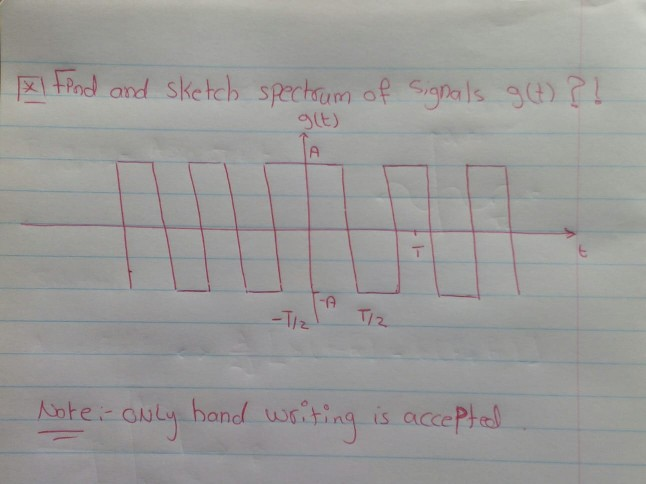 [x] Find and sketch spectrum of signals g(t)?!
g(t)
A
t
T
-A
-T/2 T/2
Note:- ONLy hand writing is accepted.